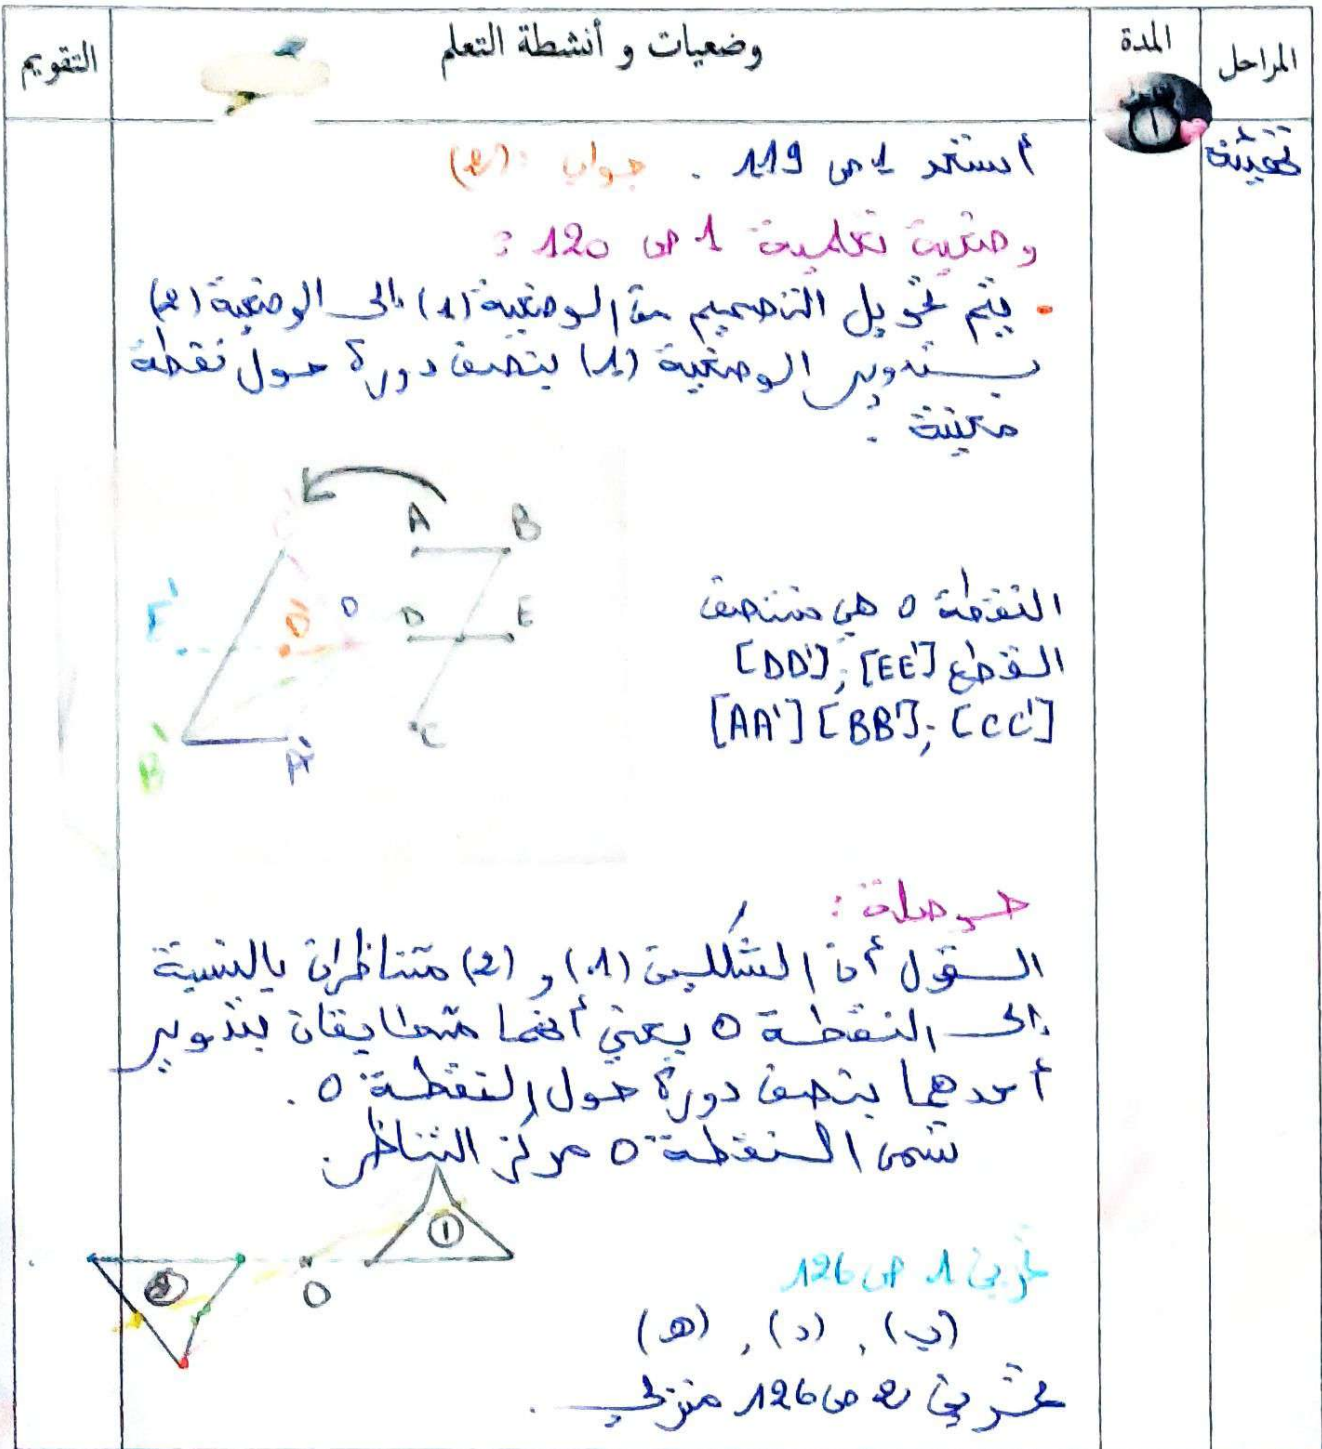 المراحل
المدة
وضعيات و أنشطة التعلم
التقويم
تهيئة
أستعد 1 ص 119 . جواب : (2)
وضعية تعلمية 1 ص 120 :
• يتم تحويل التصميم من الوضعية (1) إلى الوضعية (2)
بتدوير الوضعية (1) بنصف دورة حول نقطة
معينة :
A B
C'
النقطة O هي منتصف
القطع [EE'] ; [DD']
[AA'] [BB'] ; [CC']
E' D' O D E
C
B' A'
حوصلة :
القول أن الشكلين (1) و (2) متناظران بالنسبة
إلى النقطة O يعني أنهما متطابقان بتدوير
أحدهما بنصف دورة حول النقطة O .
تسمى النقطة O مركز التناظر.
①
② O
تمرين 1 ص 126
(ب) , (د) , (هـ)
تمرين 2 ص 126 منزلي .